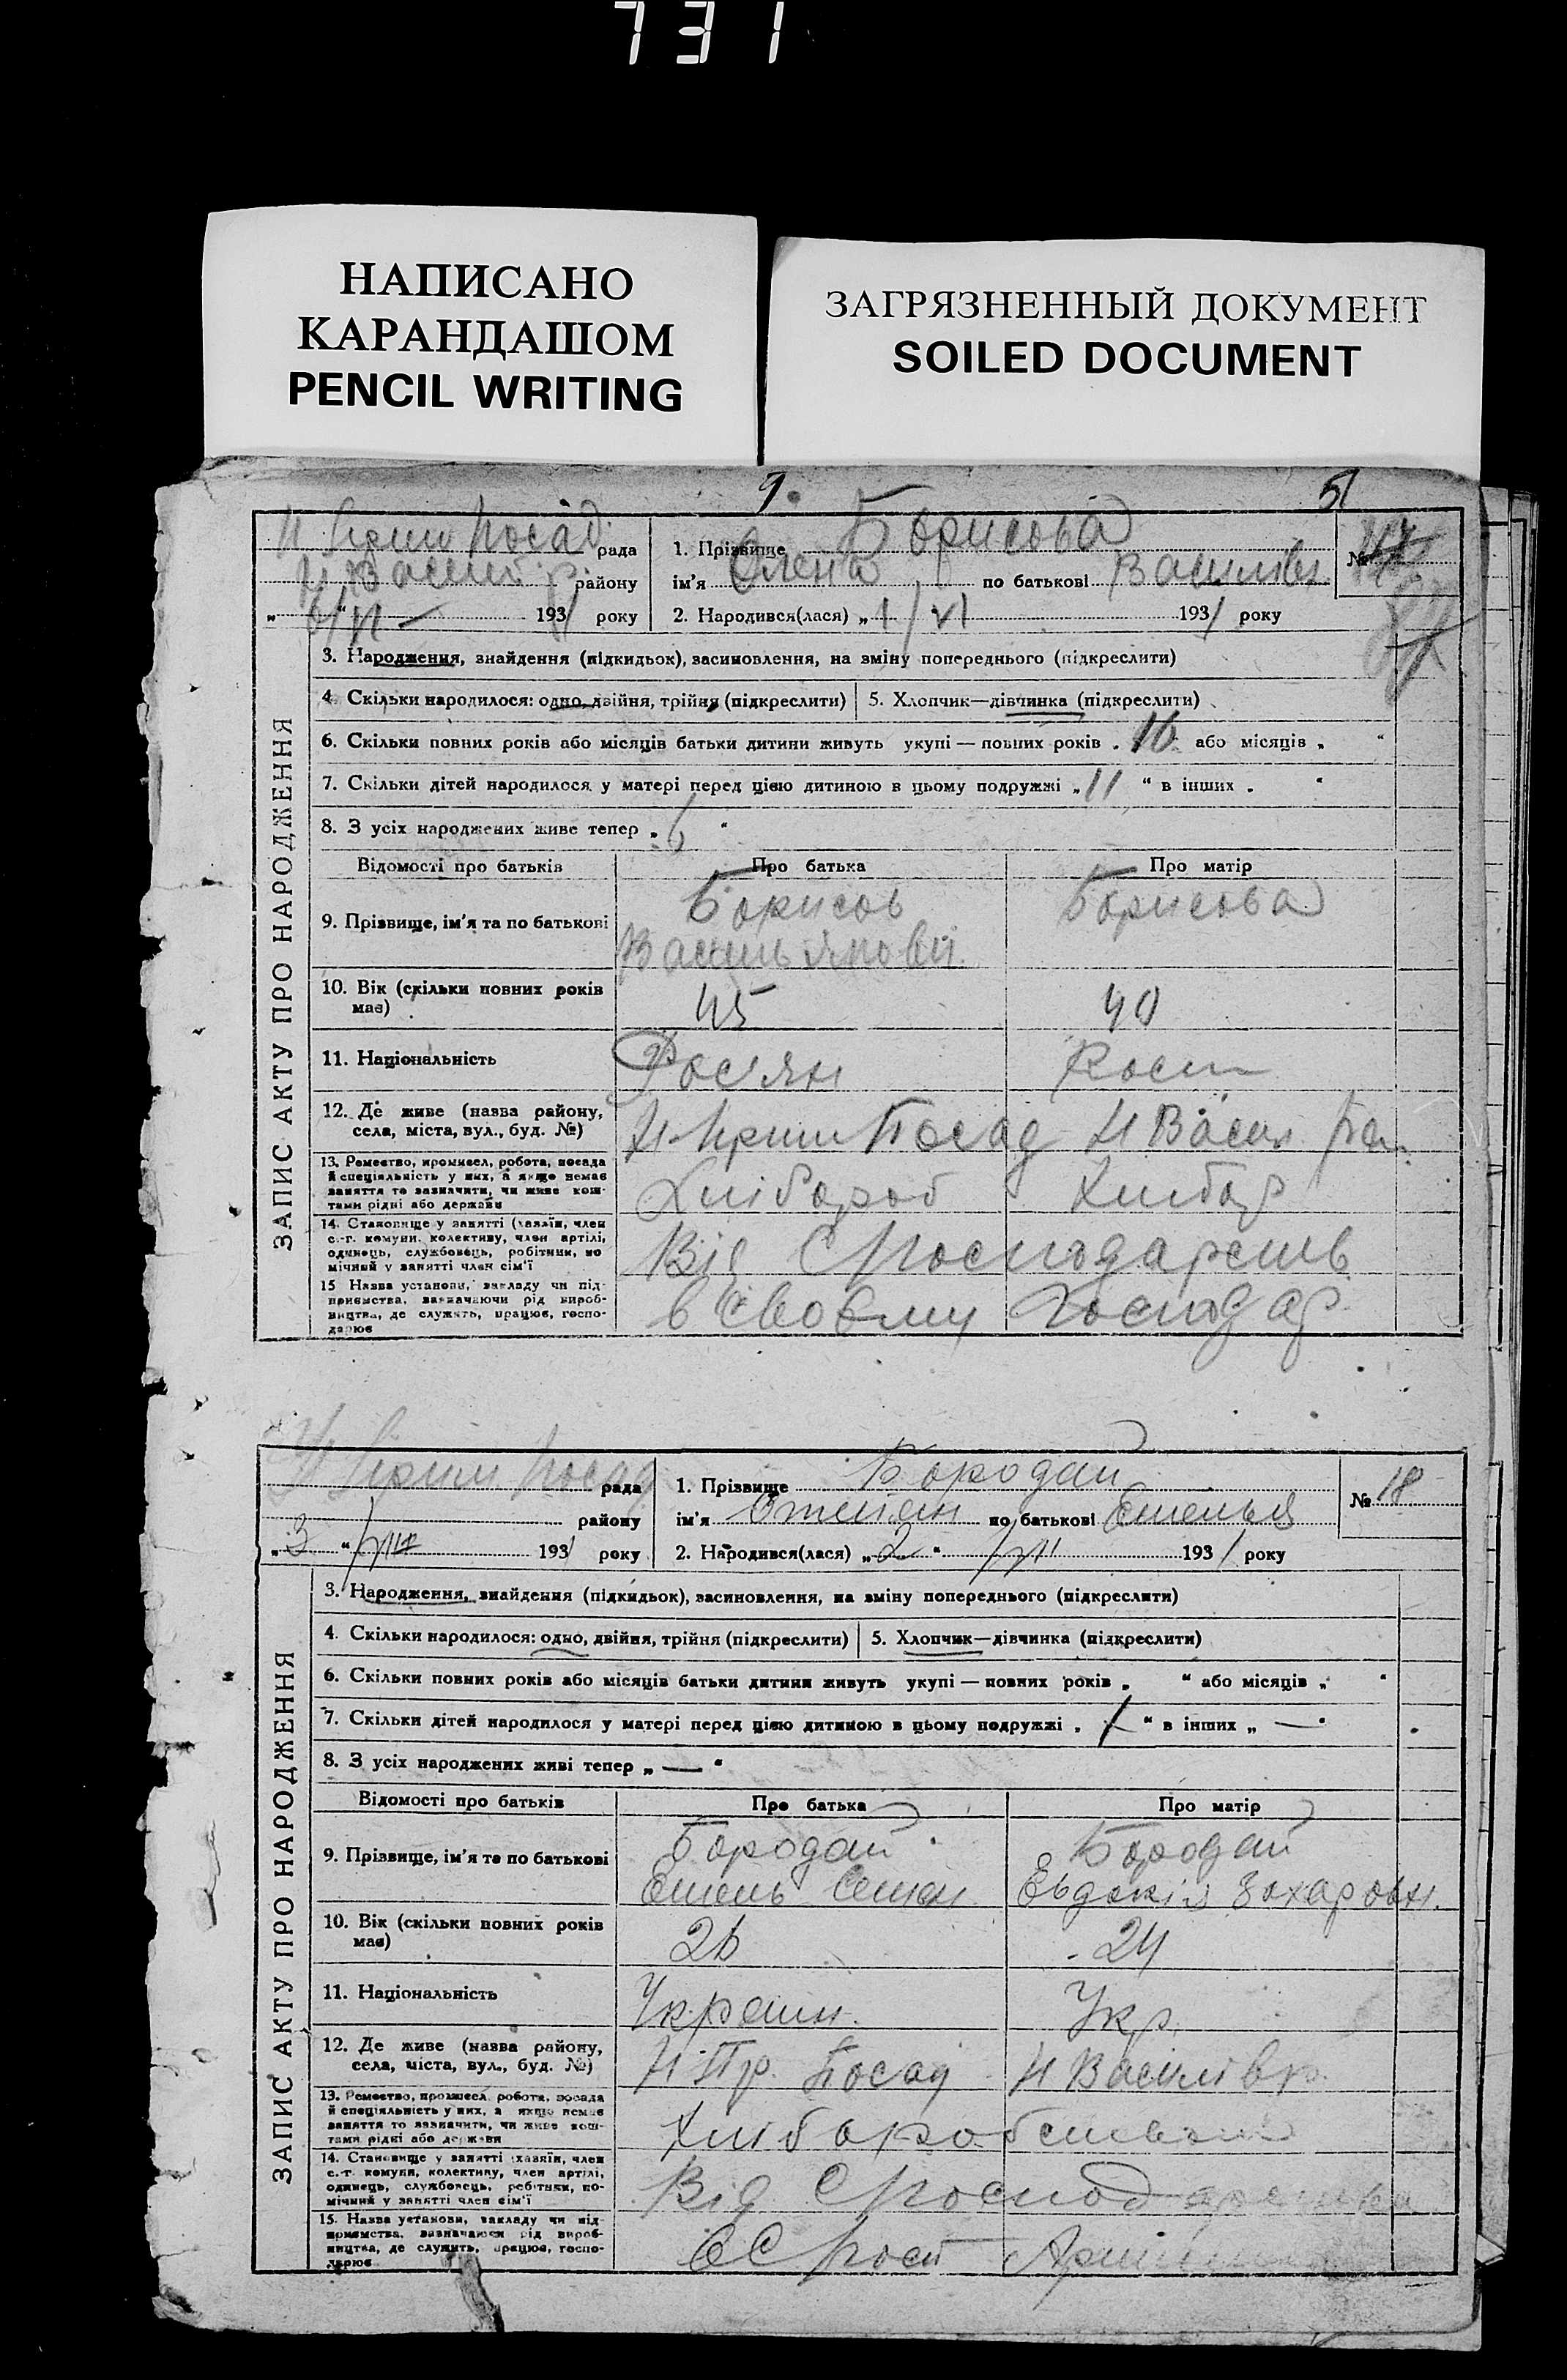 731
НАПИСАНО
КАРАНДАШОМ
PENCIL WRITING
ЗАГРЯЗНЕННЫЙ ДОКУМЕНТ
SOILED DOCUMENT
9. 51
ЗАПИС АКТУ ПРО НАРОДЖЕННЯ
Посад рада
району
6/VI — 1931 року
1. Прізвище Борисова
ім'я Олена по батькові Василівн
2. Народився(лася) „1/VI 1931 року
№
3. Народження, знайдення (підкидьок), засиновлення, на зміну попереднього (підкреслити)
4. Скільки народилося: одно, двійня, трійня (підкреслити) 5. Хлопчик—дівчинка (підкреслити)
6. Скільки повних років або місяців батьки дитини живуть укупі — повних років „16 або місяців „ “
7. Скільки дітей народилося у матері перед цією дитиною в цьому подружжі „11“ в інших „ “
8. З усіх народжених живе тепер „6“
Відомості про батьків Про батька Про матір
9. Прізвище, ім'я та по батькові Борисов Борисова
Василь
10. Вік (скільки повних років 45 40
має)
11. Національність Росіян Росі
12. Де живе (назва району, Посад Н Васил
села, міста, вул., буд. №)
13. Ремество, промисел, робота, посада Хлібороб Хлібор
й спеціяльність у них, а якщо немає
заняття то зазначити, чи живе кош-
тами рідні або держави
14. Становище у занятті (хазяїн, член Від С господарств
с.-г. комуни, колективу, член артілі,
одинець, службовець, робітник, по
мічний у занятті член сім'ї
15 Назва установи, закладу чи під- в своєму господар
приємства, зазначаючи рід вироб-
ництва, де служить, працює, госпо-
дарює
ЗАПИС АКТУ ПРО НАРОДЖЕННЯ
Посад рада
району
„3“ VIII 1931 року
1. Прізвище Бородай
ім'я Степан по батькові
2. Народився(лася) „2“ VIII 1931 року
№ 18
3. Народження, знайдення (підкидьок), засиновлення, на зміну попереднього (підкреслити)
4. Скільки народилося: одно, двійня, трійня (підкреслити) 5. Хлопчик—дівчинка (підкреслити)
6. Скільки повних років або місяців батьки дитини живуть укупі — повних років „ “ або місяців „ “
7. Скільки дітей народилося у матері перед цією дитиною в цьому подружжі „ “ в інших „—“
8. З усіх народжених живі тепер „—“
Відомості про батьків Про батька Про матір
9. Прізвище, ім'я та по батькові Бородай Бородай
Семен Евдокія Захаровн.
10. Вік (скільки повних років 26 24
має)
11. Національність Україн. Укр.
12. Де живе (назва району, Н Пр. Посад Н Василівр.
села, міста, вул., буд. №)
13. Ремество, промисел, робота, посада
й спеціяльність у них, а якщо немає
заняття то зазначити, чи живе кош-
тами рідні або держави
14. Становище у занятті (хазяїн, член Від С господарства
с.-г. комуни, колективу, член артілі,
одинець, службовець, робітник, по-
мічний у занятті член сім'ї
15. Назва установи, закладу чи під-
приємства, зазначаючи рід вироб-
ництва, де служить, працює, госпо-
дарює